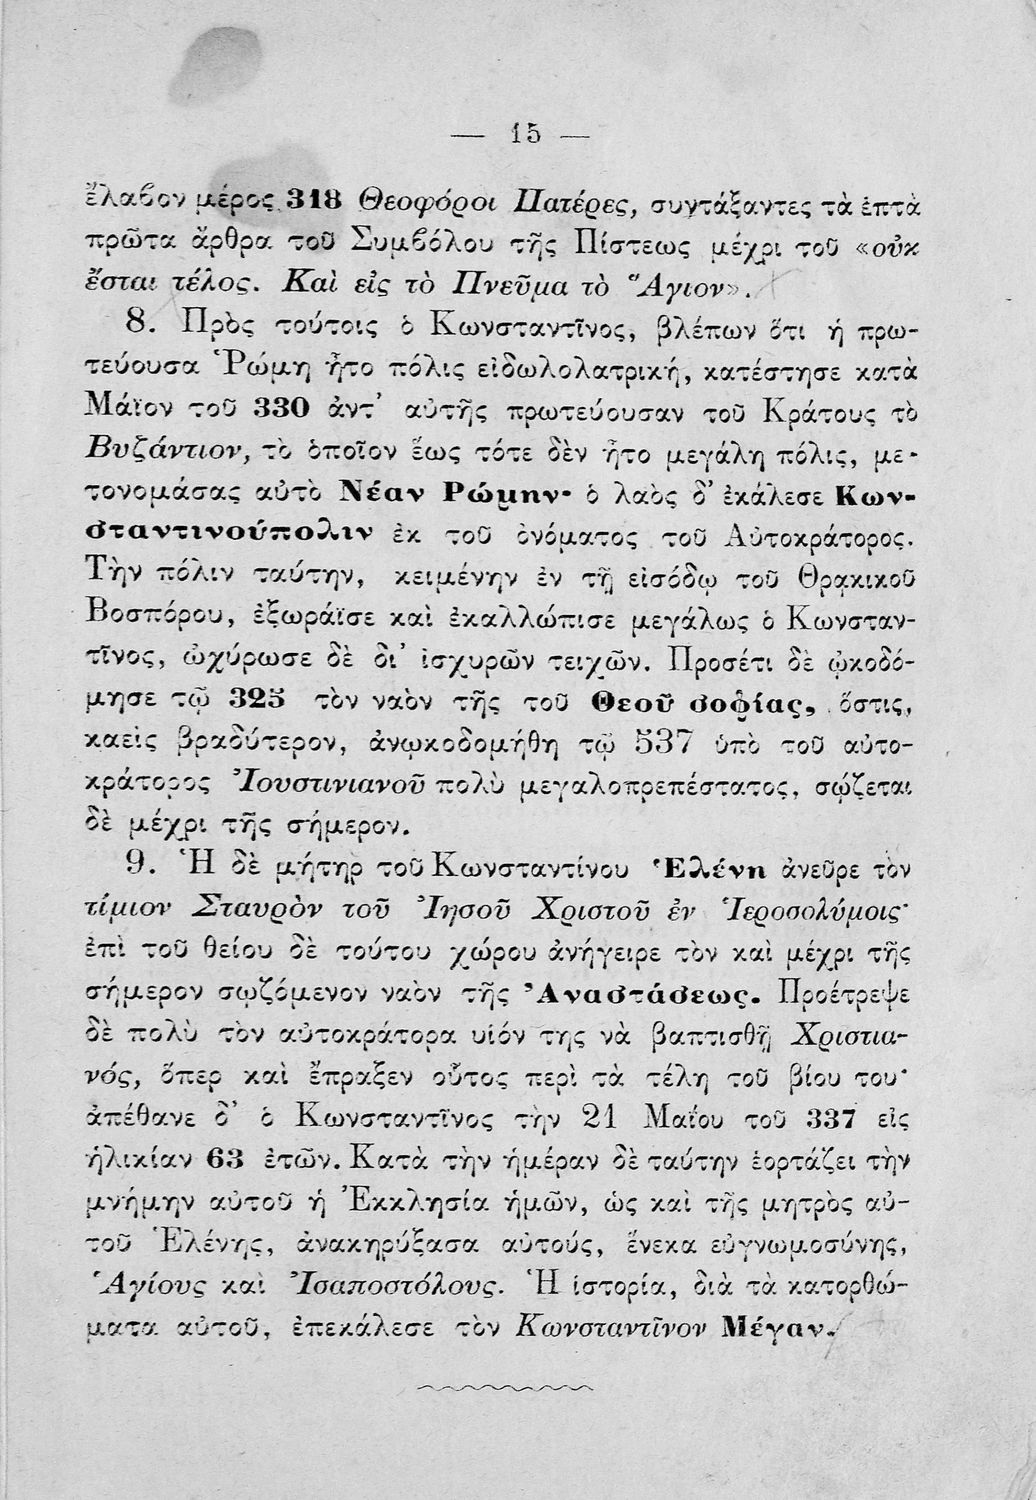 — 15 —
ἔλαβον μέρος 318 Θεοφόροι Πατέρες, συντάξαντες τὰ ἑπτὰ
πρῶτα ἄρθρα τοῦ Συμβόλου τῆς Πίστεως μέχρι τοῦ «οὐκ
ἔσται τέλος. Καὶ εἰς τὸ Πνεῦμα τὸ Ἅγιον».
8. Πρὸς τούτοις ὁ Κωνσταντῖνος, βλέπων ὅτι ἡ πρω-
τεύουσα Ῥώμη ἦτο πόλις εἰδωλολατρική, κατέστησε κατὰ
Μάϊον τοῦ 330 ἀντ' αὐτῆς πρωτεύουσαν τοῦ Κράτους τὸ
Βυζάντιον, τὸ ὁποῖον ἕως τότε δὲν ἦτο μεγάλη πόλις, με-
τονομάσας αὐτὸ Νέαν Ρώμην· ὁ λαὸς δ' ἐκάλεσε Κων-
σταντινούπολιν ἐκ τοῦ ὀνόματος τοῦ Αὐτοκράτορος.
Τὴν πόλιν ταύτην, κειμένην ἐν τῇ εἰσόδῳ τοῦ Θρακικοῦ
Βοσπόρου, ἐξωράϊσε καὶ ἐκαλλώπισε μεγάλως ὁ Κωνσταν-
τῖνος, ὠχύρωσε δὲ δι' ἰσχυρῶν τειχῶν. Προσέτι δὲ ᾠκοδό-
μησε τῷ 325 τὸν ναὸν τῆς τοῦ Θεοῦ σοφίας, ὅστις,
καεὶς βραδύτερον, ἀνῳκοδομήθη τῷ 537 ὑπὸ τοῦ αὐτο-
κράτορος Ἰουστινιανοῦ πολὺ μεγαλοπρεπέστατος, σῴζεται
δὲ μέχρι τῆς σήμερον.
9. Ἡ δὲ μήτηρ τοῦ Κωνσταντίνου Ἑλένη ἀνεῦρε τὸν
τίμιον Σταυρὸν τοῦ Ἰησοῦ Χριστοῦ ἐν Ἱεροσολύμοις·
ἐπὶ τοῦ θείου δὲ τούτου χώρου ἀνήγειρε τὸν καὶ μέχρι τῆς
σήμερον σῳζόμενον ναὸν τῆς Ἀναστάσεως. Προέτρεψε
δὲ πολὺ τὸν αὐτοκράτορα υἱόν της νὰ βαπτισθῇ Χριστια-
νός, ὅπερ καὶ ἔπραξεν οὗτος περὶ τὰ τέλη τοῦ βίου του·
ἀπέθανε δ' ὁ Κωνσταντῖνος τὴν 21 Μαΐου τοῦ 337 εἰς
ἡλικίαν 63 ἐτῶν. Κατὰ τὴν ἡμέραν δὲ ταύτην ἑορτάζει τὴν
μνήμην αὐτοῦ ἡ Ἐκκλησία ἡμῶν, ὡς καὶ τῆς μητρὸς αὐ-
τοῦ Ἑλένης, ἀνακηρύξασα αὐτούς, ἕνεκα εὐγνωμοσύνης,
Ἁγίους καὶ Ἰσαποστόλους. Ἡ ἱστορία, διὰ τὰ κατορθώ-
ματα αὐτοῦ, ἐπεκάλεσε τὸν Κωνσταντῖνον Μέγαν.